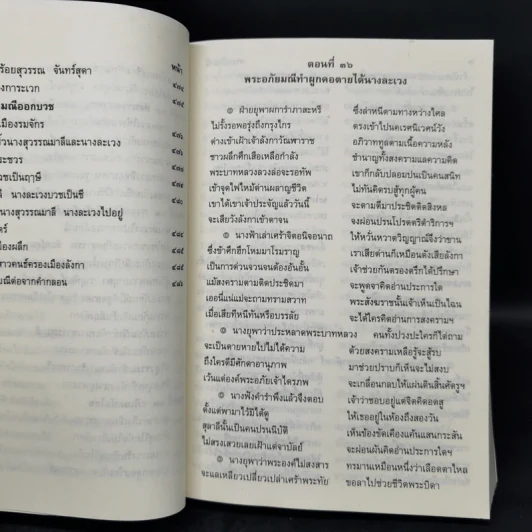 ร้อยสุวรรณ จันทร์สุดา
หน้า
งการะเวก
มณีออกบวช
เมืองรมจักร
งนางสุวรรณมาลีและนางละเวง
ระชวร
วชเป็นฤาษี
ลี นางละเวงบวชเป็นชี
นางสุวรรณมาลี นางละเวงไปอยู่
ตร์
เมืองผลึก
าวคนธ์ครองเมืองลังกา
ยมณีต่อจากคำกลอน
ตอนที่ ๓๖
พระอภัยมณีทำผูกคอตายได้นางละเวง
๏ ฝ่ายยุพาผการำภาสะหรี ซึ่งลำหนีตามทางหว่างไศล
ไม่รั้งรอพอรุ่งถึงกรุงไกร ตรงเข้าไปในนคเรศนิเวศน์วัง
ต่างเข้าเฝ้าเจ้าลังกาวัณฬาราช อภิวาททูลตามเนื้อความหลัง
ชาวผลึกศึกเสือเหลือกำลัง ชำนาญทั้งสงครามและความคิด
พระบาทหลวงลวงล่อจะรอทัพ เขาก็กลับปลอมปนเป็นคนสนิท
เข้าจุดไฟไหม้ด่านผลาญชีวิต ไม่ทันคิดรบสู้ทุกผู้คน
เขาได้เขาเจ้าประจัญแล้ววันนี้ จะตามตีมาประชิดติดสิงหล
จะเสียวังลังกาเข้าตาจน จงผ่อนปรนโปรดตรีดำริการฯ
๏ นางฟ้าเล่าเศร้าจิตอนิจอนาถ ให้หวั่นหวาดวิญญาณ์จึงว่าขาน
ซึ่งข้าศึกฮึกโหมมาโรมราญ เราเสียด่านก็เหมือนดังเสียลังกา
เป็นการด่วนจวนจนต้องอ้นอั้น เจ้าช่วยกันตรองตรึกได้ปรึกษา
แม้สงครามตามติดประชิดมา จะพูดจาคิดอ่านประการใด
เออนี่แน่แม่จะถามทรามสวาท พระสังฆราชนั้นเจ้าเห็นเป็นไฉน
เมื่อเสียทีหนีทันหรือบรรลัย จะได้ใครคิดอ่านการสงครามฯ
๏ นางยุพาว่าประหลาดพระบาทหลวง คนทั้งปวงปะใครก็ไต่ถาม
จะเป็นตายหายไปไม่ได้ความ ด้วยสงครามเหลือรู้จะสู้รบ
ถึงใครดีมีศักดาอานุภาพ มาช่วยปราบก็เห็นจะไม่สงบ
เว้นแต่องค์พระอภัยเจ้าไตรภพ จะเกลื่อนกลบให้แผ่นดินสิ้นศัตรูฯ
๏ นางฟังคำรำพึงแล้วจึงตอบ เจ้าว่าชอบอยู่แต่จิตคิดอดสู
ตั้งแต่พามาไว้มิได้ดู ให้เธออยู่ในห้องถึงสองวัน
สุลาลีนั้นเป็นคนปรนนิบัติ เห็นข้องขัดเคืองแค้นแสนกระสัน
ไม่สรงเสวยเลยเฝ้าแต่จาบัลย์ จะผ่อนผันคิดอ่านประการใดฯ
๏ นางยุพาว่าพระองค์ไม่สงสาร ทรมานเหมือนหนึ่งว่าเลือดตาไหล
จะแลเหลียวเปลี่ยวเปล่าเศร้าพระทัย ขอลาไปช่วยชีวิตพระบิดา